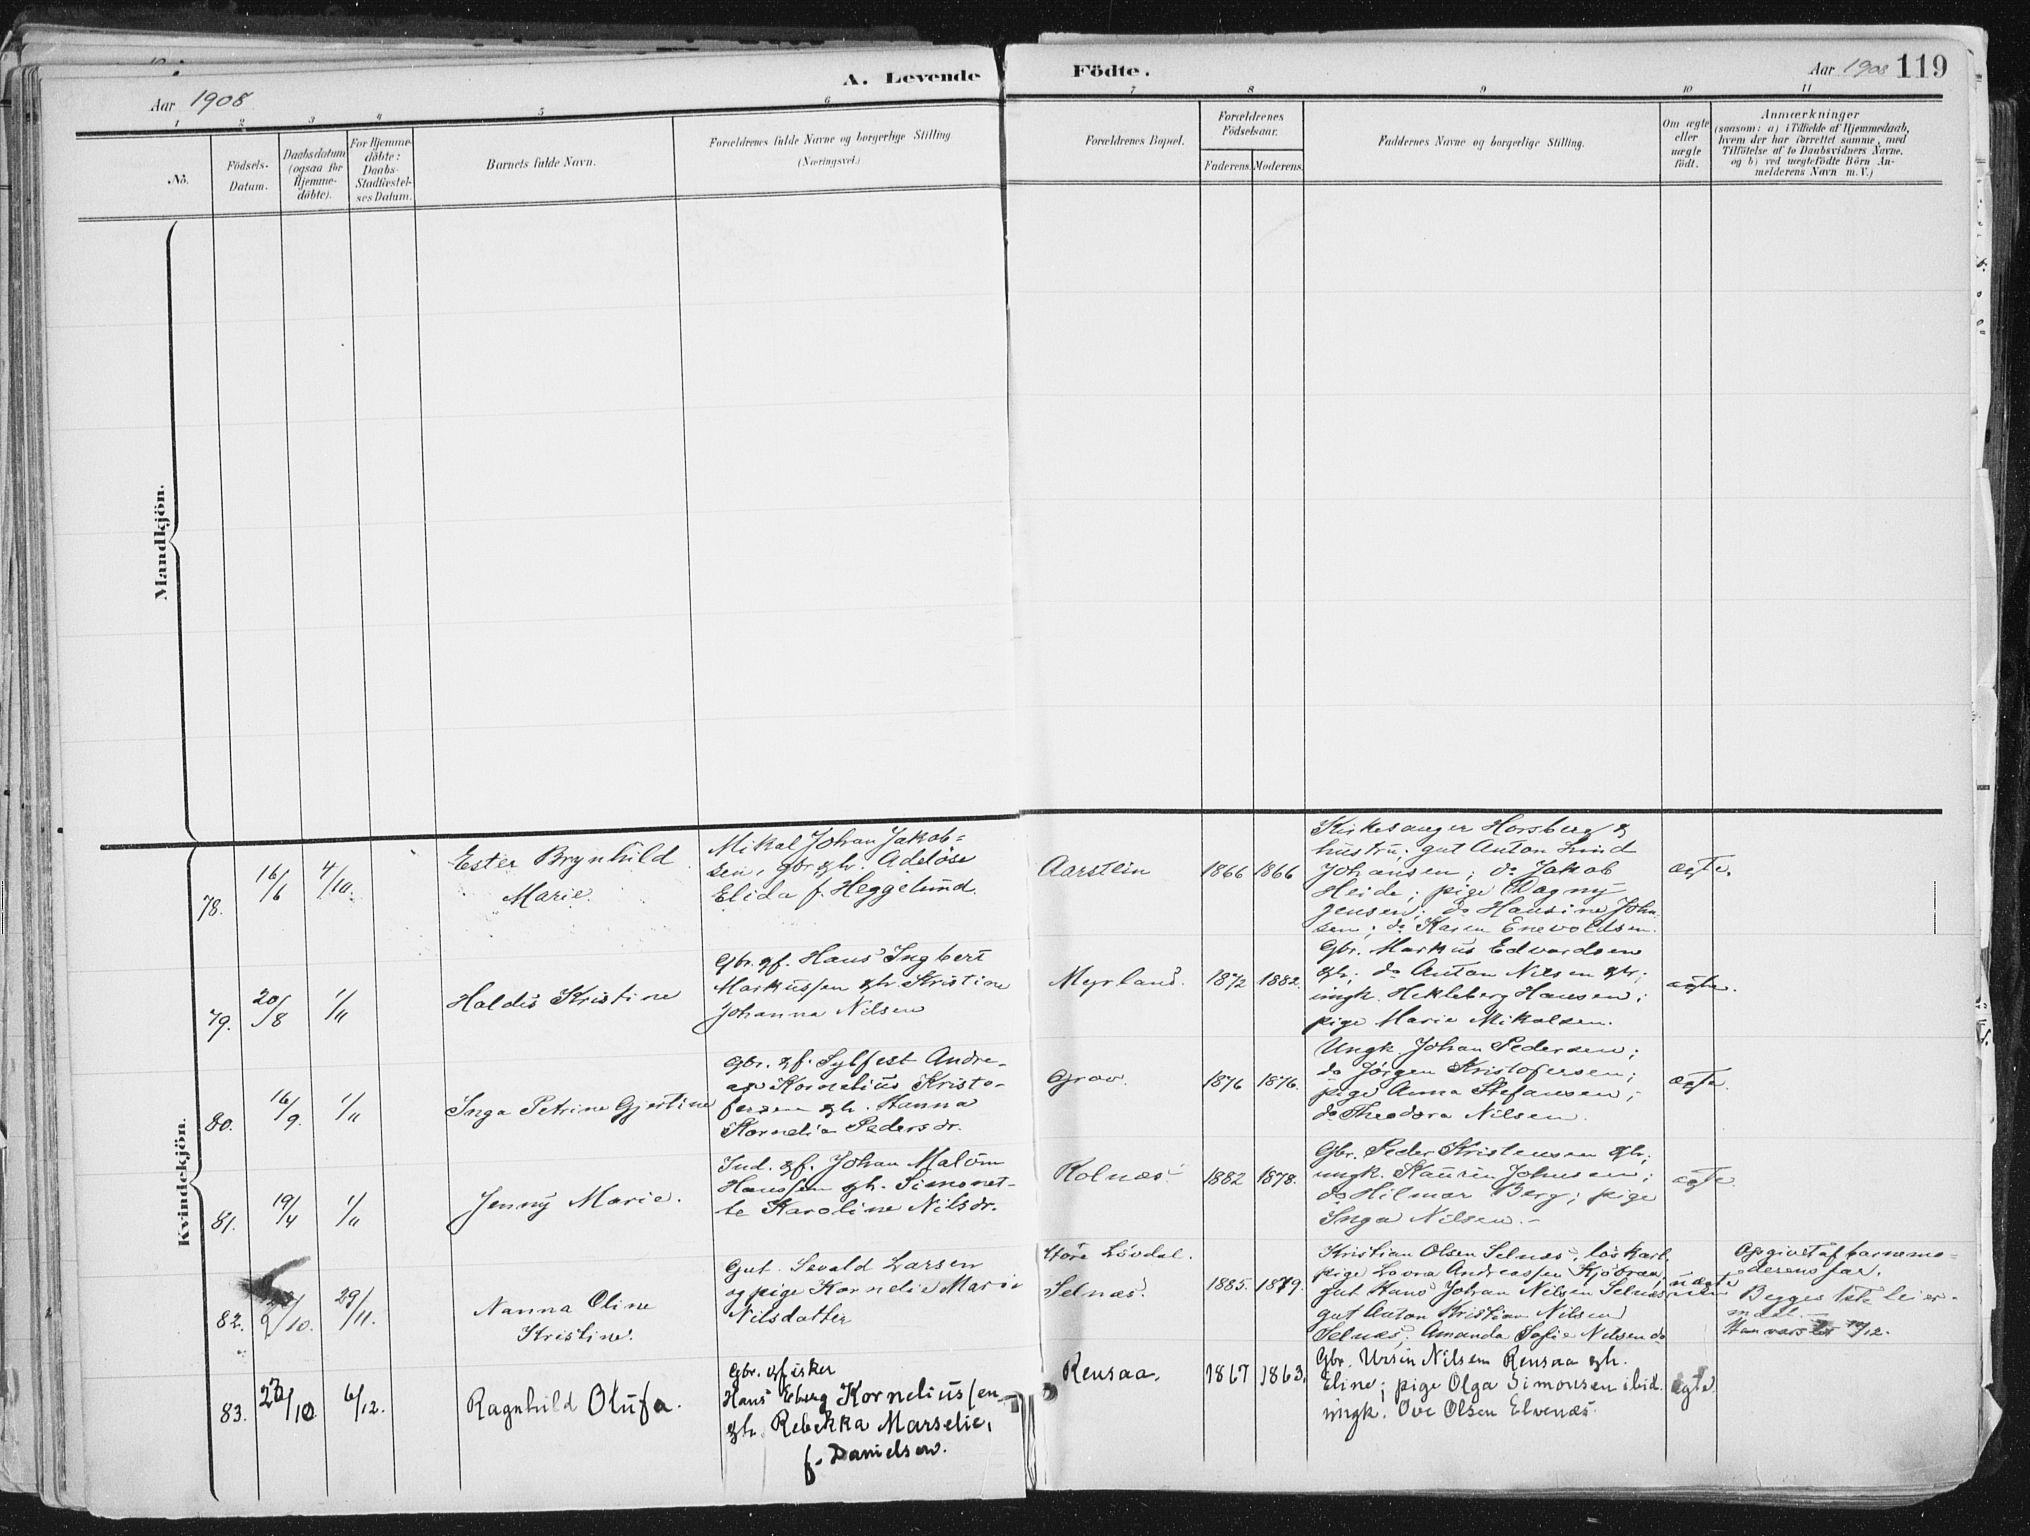 A. Levende Födte.
Aar 1908
Aar 1908 119
1 2 3 4 5 6 7 8 9 10 11
No.
Födsels-
Datum.
Daabsdatum
(ogsaa for
Hjemme-
döbte).
For Hjemme-
döbte:
Daabs-
Stadfæstel-
ses Datum.
Barnets fulde Navn.
Forældrenes fulde Navne og borgerlige Stilling
(Næringsvei.)
Forældrenes Bopæl.
Forældrenes
Födselsaar.
Faderens. Moderens.
Faddernes Navne og borgerlige Stilling.
Om ægte
eller
uægte
födt.
Anmærkninger
(saasom: a) i Tilfælde af Hjemmedaab,
hvem der har forrettet samme, med
Tilföielse af to Daabsvidners Navne.
og b) ved uægtefödte Börn An-
melderens Navn m. V.)
Mandkjön.
Kvindekjön.
78.
16/6
4/10.
Ester Brynhild
Marie.
Mikal Johan Jakob-
sen, gbr. &h. Adelöse
Elida f. Heggelund.
Aarstein
1866
1866
Kirkesanger Horsberg &
hustru; gut Anton Lind
Johansen; do Jakob
Heide; pige Dagny
Jensen; do Hansine John
sen; do Karen Enevoldsen.
ægte.
79.
20/8
1/11
Haldis Kristine
Gbr. &f. Hans Ingbert
Markussen &h. Kristine
Johanna Nilsen
Myrland.
1872
1882.
Gbr. Markus Edvardsen
&h; do Anton Nilsen &h;
ungk. Hekleberg Hansen;
pige Marie Mikalsen.
ægte.
80.
16/9.
1/11
Inga Petrine Gjertine
Gbr. &f. Sylfest Andre-
as Kornelius Kristo-
fersen &h. Hanna
Kornelia Pedersdr.
Grav.
1876
1876.
Ungk. Johan Pedersen;
do Jörgen Kristofersen;
pige Anna Stefansen;
do Theodora Nilsen.
ægte.
81.
19/4
1/11
Jenny Marie.
Ind. &f. Johan Malöm
Hanssen &h. Simonet-
te Karoline Nilsdr.
Rolnæs.
1882
1878.
Gbr. Peder Kristensen &h;
ungk. Laurin Johnsen;
do Hilmar Berg; pige
Inga Nilsen.-
ægte.
82.
/10.
29/11.
Nanna Oline
Kristine.
Gut Sevald Larsen
og pige Kornelie Marie
Nilsdatter
Store Lövdal.
Selnæs.
1885.
1879.
Kristian Olsen Selnæs, löskarl,
pige Lovra Andreassen Kjöbraa,
gut Hans Johan Nilsen Selnæs
gut Anton Kristian Nilsen
Selnæs, Amanda Sofie Nilsen do
uægte
Opgivet af barnemo-
derens far.
Begges 1ste leier-
maal.
83.
/10
6/12.
Ragnhild Olufa.
Gbr. &fisker
Hans Eberg Kornelissen
&h. Rebekka Marselie,
f. Danielsen.
Rensaa.
1867
1863.
Gbr. Ursin Nilsen Rensaa &h.
Eline; pige Olga Simonsen ibid.
ungk. Ove Olsen Elvenæs
ægte